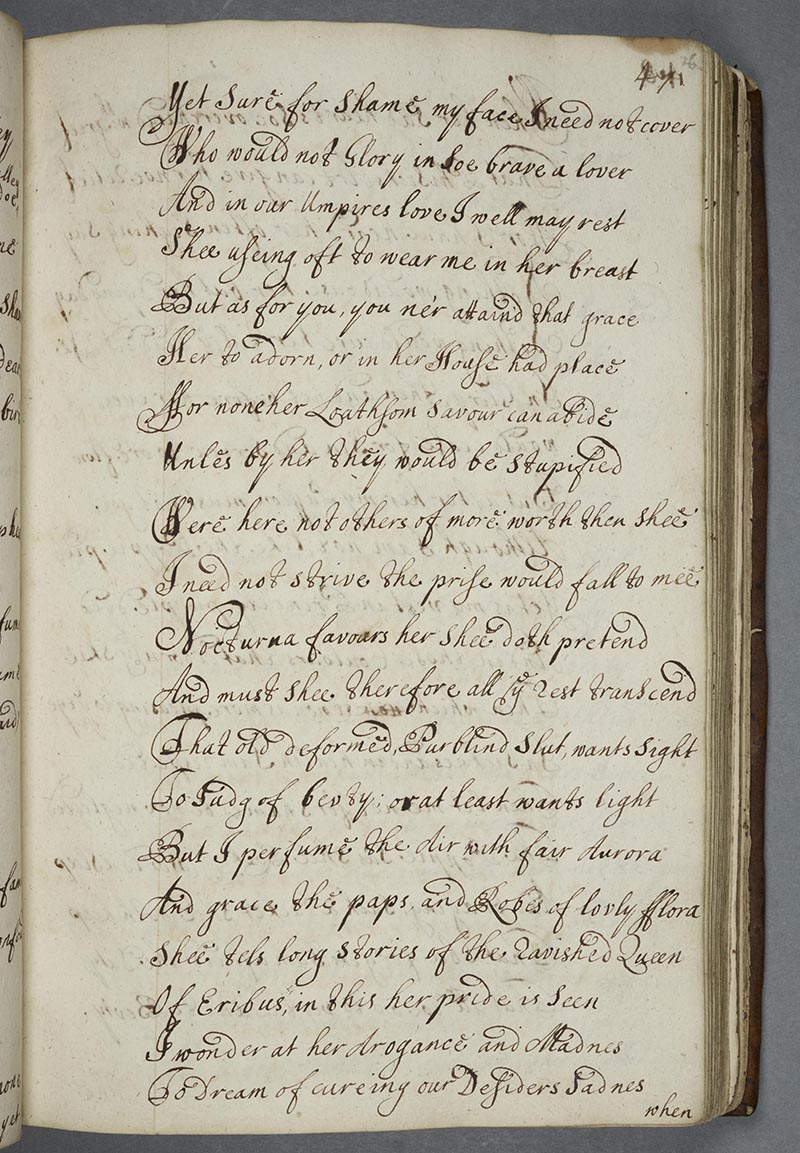 47
Yet Sure for shame my face I need not cover
Who would not Glory in soe brave a lover
And in our Umpires love I well may rest
Shee useing oft to wear me in her breast
But as for you, you ne'r attaind that grace
Her to adorn, or in her House had place
ffor none her Loathsom savour can abide
Unles by her they would be stupified
Were here not others of more worth then shee
I need not strive the prise would fall to mee
Nocturna favours her shee doth pretend
And must shee therefore all ye rest transcend
That old deformed, Purblind slut, wants sight
To Judg of bevty; or at least wants light
But I perfume the Air with fair Aurora
And grace the paps and Robes of lovly fflora
Shee tels long stories of the ravished Queen
Of Eribus, in this her pride is seen
I wonder at her Arogance and Madnes
To Dream of cureing our Desiders Sadnes
when